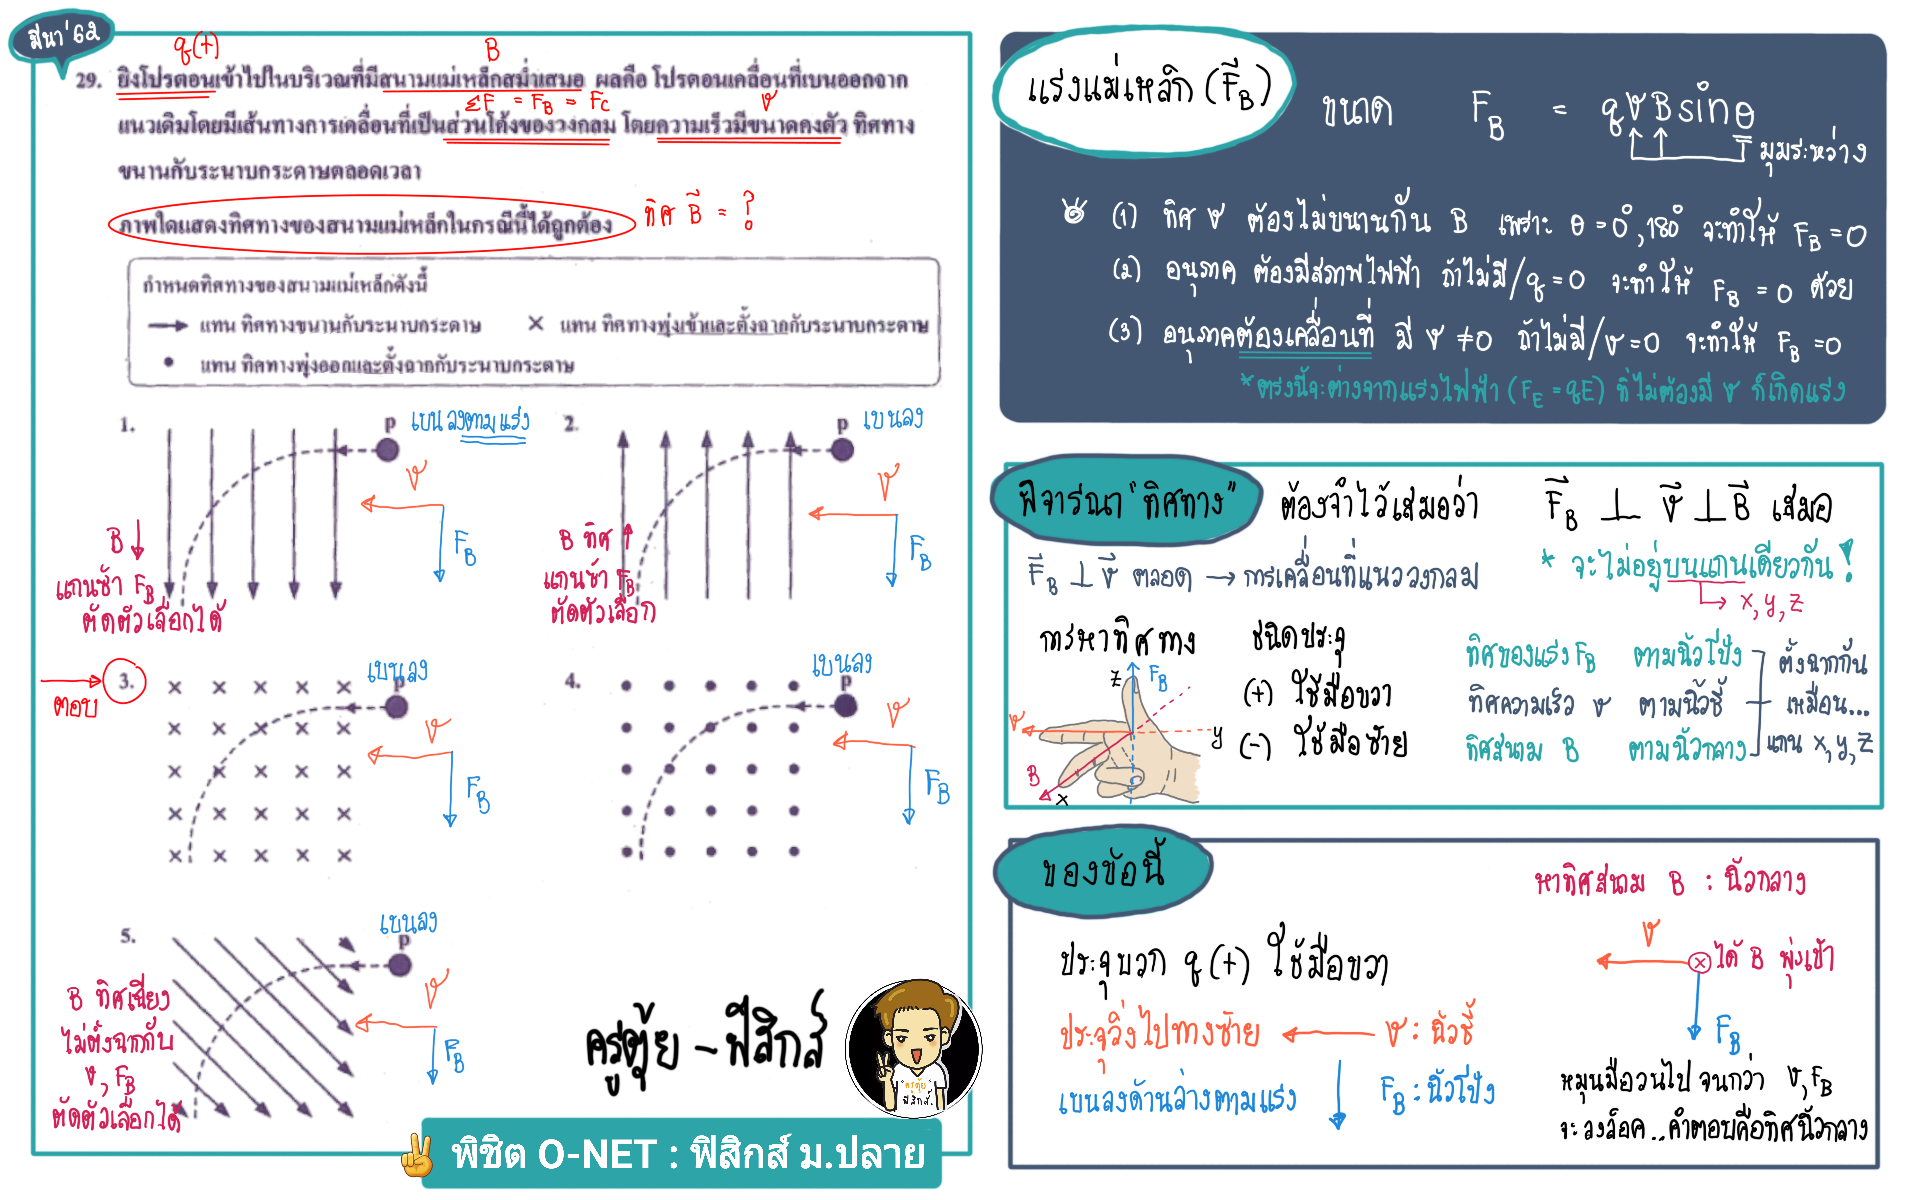 มีนา'62
q(+)
B
29. ยิงโปรตอนเข้าไปในบริเวณที่มีสนามแม่เหล็กสม่ำเสมอ ผลคือ โปรตอนเคลื่อนที่เบนออกจาก
ΣF = F_B = F_C
v
แนวเดิมโดยมีเส้นทางการเคลื่อนที่เป็นส่วนโค้งของวงกลม โดยความเร็วมีขนาดคงตัว ทิศทาง
ขนานกับระนาบกระดาษตลอดเวลา
ภาพใดแสดงทิศทางของสนามแม่เหล็กในกรณีนี้ได้ถูกต้อง
ทิศ B = ?
กำหนดทิศทางของสนามแม่เหล็กดังนี้
→ แทน ทิศทางขนานกับระนาบกระดาษ × แทน ทิศทางพุ่งเข้าและตั้งฉากกับระนาบกระดาษ
• แทน ทิศทางพุ่งออกและตั้งฉากกับระนาบกระดาษ
1.
p
เบนลงตามแรง
v
F_B
B ↓
แกนซ้ำ F_B
ตัดตัวเลือกได้
2.
p
เบนลง
v
F_B
B ทิศ ↑
แกนซ้ำ F_B
ตัดตัวเลือก
ตอบ
3.
เบนลง
p
v
F_B
4.
เบนลง
p
v
F_B
5.
เบนลง
p
v
F_B
B ทิศเฉียง
ไม่ตั้งฉากกับ
v, F_B
ตัดตัวเลือกได้
ครูตุ้ย - ฟิสิกส์
ครูตุ้ย
ฟิสิกส์
พิชิต O-NET : ฟิสิกส์ ม.ปลาย
แรงแม่เหล็ก (F_B)
ขนาด F_B = qvBsinθ
มุมระหว่าง
(1) ทิศ v ต้องไม่ขนานกับ B เพราะ θ = 0°, 180° จะทำให้ F_B = 0
(2) อนุภาค ต้องมีสภาพไฟฟ้า ถ้าไม่มี/q = 0 จะทำให้ F_B = 0 ด้วย
(3) อนุภาคต้องเคลื่อนที่ มี v ≠ 0 ถ้าไม่มี/v = 0 จะทำให้ F_B = 0
* ตรงนี้จะต่างจากแรงไฟฟ้า (F_E = qE) ที่ไม่ต้องมี v ก็เกิดแรง
พิจารณา "ทิศทาง"
ต้องจำไว้เสมอว่า F_B ⊥ v ⊥ B เสมอ
F_B ⊥ v ตลอด → การเคลื่อนที่แนววงกลม
* จะไม่อยู่บนแกนเดียวกัน !
→ x, y, z
การหาทิศทาง
z
F_B
v
y
B
x
ชนิดประจุ
(+) ใช้มือขวา
(-) ใช้มือซ้าย
ทิศของแรง F_B ตามนิ้วโป้ง
ทิศความเร็ว v ตามนิ้วชี้
ทิศสนาม B ตามนิ้วกลาง
ตั้งฉากกัน
เหมือน...
แกน x, y, z
ของข้อนี้
ประจุบวก q(+) ใช้มือขวา
ประจุวิ่งไปทางซ้าย ← v : นิ้วชี้
เบนลงด้านล่างตามแรง ↓ F_B : นิ้วโป้ง
หาทิศสนาม B : นิ้วกลาง
v
ได้ B พุ่งเข้า
F_B
หมุนมือวนไป จนกว่า v, F_B
จะลงล็อค..คำตอบคือทิศนิ้วกลาง